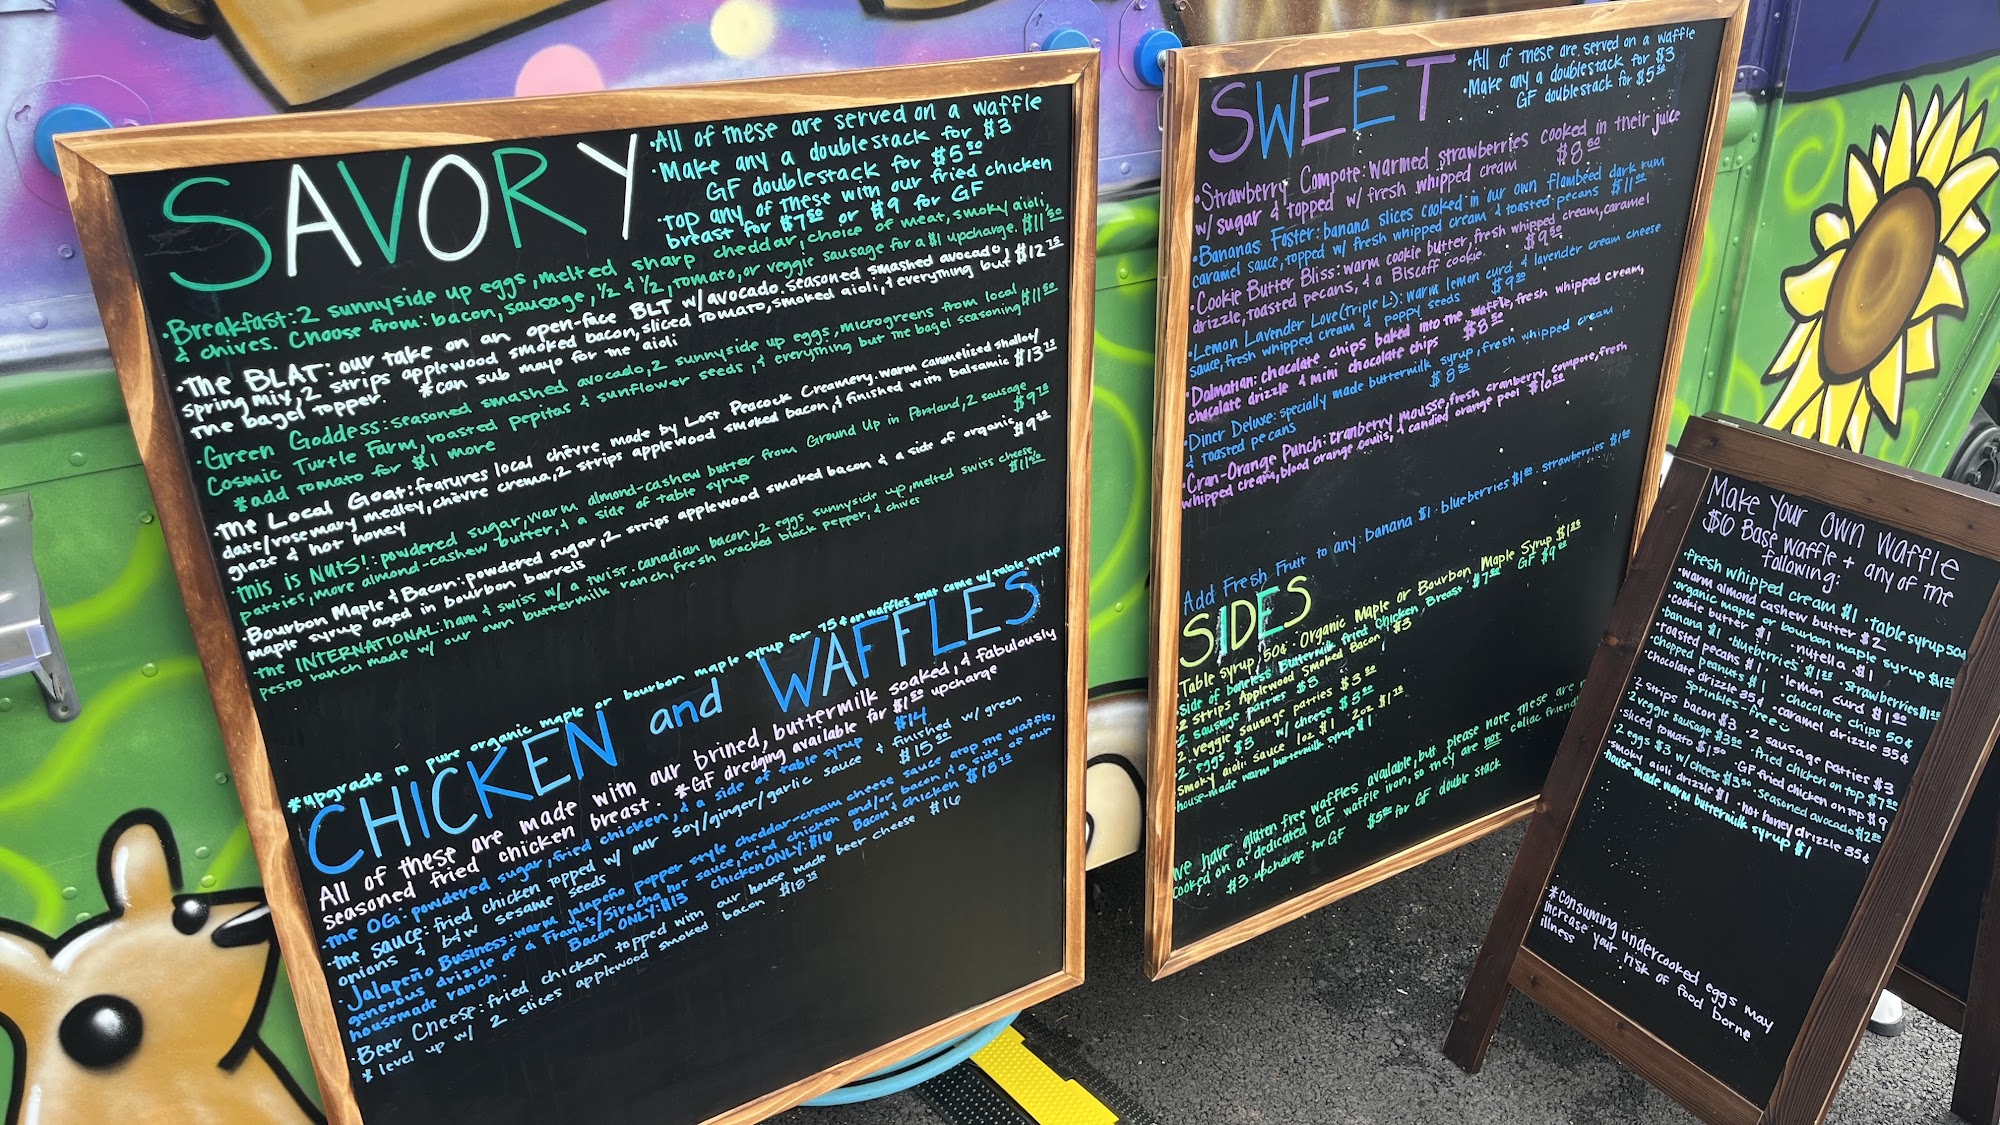 SAVORY
•All of these are served on a waffle
•Make any a doublestack for $3
GF doublestack for $5.50
•Top any of these with our fried chicken
breast for $7.50 or $9 for GF
•Breakfast: 2 sunnyside up eggs, melted sharp cheddar, choice of meat, smoky aioli,
& chives. Choose from: bacon, sausage, 1/2 & 1/2, tomato, or veggie sausage for a $1 upcharge. $11.50
•The BLAT: our take on an open-face BLT w/ avocado. Seasoned smashed avocado,
spring mix, 2 strips applewood smoked bacon, sliced tomato, smoked aioli, & everything but $12.75
the bagel topper. *can sub mayo for the aioli
•Green Goddess: seasoned smashed avocado, 2 sunnyside up eggs, microgreens from local
Cosmic Turtle Farm, roasted pepitas & sunflower seeds, & everything but the bagel seasoning $11.50
*add tomato for $1 more
•The Local Goat: features local chèvre made by Lost Peacock Creamery. Warm caramelized shallot/
date/rosemary medley, chèvre crema, 2 strips applewood smoked bacon, & finished with balsamic $13.25
glaze & hot honey
•This is NUTS!: powdered sugar, warm almond-cashew butter from Ground Up in Portland, 2 sausage
patties, more almond-cashew butter, & a side of table syrup $9.75
•Bourbon Maple & Bacon: powdered sugar, 2 strips applewood smoked bacon & a side of organic
maple syrup aged in bourbon barrels
•The INTERNATIONAL: ham & swiss w/ a twist. Canadian bacon, 2 eggs sunnyside up, melted swiss cheese,
pesto ranch made w/ our own buttermilk ranch, fresh cracked black pepper, & chives
*upgrade to pure organic maple or bourbon maple syrup for 75¢ on waffles that come w/ table syrup
CHICKEN and WAFFLES
All of these are made with our brined, buttermilk soaked, & fabulously
seasoned fried chicken breast. *GF dredging available for $1.50 upcharge
•The OG: powdered sugar, fried chicken, & a side of table syrup $14
•The Sauce: fried chicken topped w/ our soy/ginger/garlic sauce & finished w/ green
onions & b&w sesame seeds $15.50
•Jalapeño Business: warm jalapeño popper style cheddar-cream cheese sauce atop the waffle,
generous drizzle of a Frank's/Siracha hot sauce, fried chicken and/or bacon, & a side of our
housemade ranch. Bacon ONLY: $13 chicken ONLY: $16 Bacon & chicken $18.25
•Beer Cheese: fried chicken topped with our house made beer cheese $16
*level up w/ 2 slices applewood smoked bacon
SWEET
•All of these are served on a waffle
•Make any a doublestack for $3
GF doublestack for $5.50
•Strawberry Compote: warmed strawberries cooked in their juice
w/ sugar & topped w/ fresh whipped cream $8.50
•Bananas Foster: banana slices cooked in our own flambéed dark rum
caramel sauce, topped w/ fresh whipped cream & toasted pecans
•Cookie Butter Bliss: warm cookie butter, fresh whipped cream, caramel
drizzle, toasted pecans, & a Biscoff cookie. $9.50
•Lemon Lavender Love (Triple L): warm lemon curd & lavender cream cheese
sauce, fresh whipped cream & poppy seeds
•Dalmatian: chocolate chips baked into the waffle, fresh whipped cream,
chocolate drizzle & mini chocolate chips
•Diner Deluxe: specially made buttermilk syrup, fresh whipped cream
& toasted pecans
•Cran-Orange Punch: cranberry mousse, fresh cranberry compote, fresh
whipped cream, blood orange coulis, & candied orange peel
Add Fresh Fruit to any: banana $1 • blueberries • strawberries
SIDES
•Table syrup 50¢ • Organic Maple or Bourbon Maple Syrup $1.25
•side of boneless Buttermilk Fried Chicken Breast $7.50 GF $9
•2 strips Applewood Smoked Bacon $3
•2 sausage patties $3
•2 veggie sausage patties $3.50
•2 eggs $3 w/ cheese $3.50
•smoky aioli sauce 1oz $1 2oz
•house-made warm buttermilk syrup $1
We have gluten free waffles available, but please note these are
cooked on a dedicated GF waffle iron, so they are not celiac friend
$3 upcharge for GF $5.50 for GF double stack
Make Your Own Waffle
Base waffle + any of the
following:
•fresh whipped cream $1 •table syrup 50¢
•warm almond cashew butter $2
•organic maple or bourbon maple syrup $1.25
•cookie butter $1 •nutella $1
•banana $1 •blueberries •strawberries
•toasted pecans $1 •lemon curd
•chopped peanuts $1 •chocolate chips 50¢
•chocolate drizzle 35¢ •caramel drizzle 35¢
sprinkles-free ☺
•2 strips bacon $3 •2 sausage patties $3
•2 veggie sausage $3.50 •fried chicken on top $7.50
•sliced tomato •GF fried chicken on top $9
•2 eggs $3 w/ cheese $3.50 •seasoned avocado
•smoky aioli drizzle $1 •hot honey drizzle 35¢
•house-made warm buttermilk syrup $1
*Consuming undercooked eggs may
increase your risk of food borne
illness